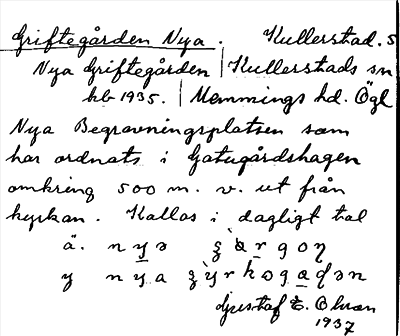 Griftegården Nya. Kullerstad. S
Nya Griftegården | Kullerstads sn
kb 1935. | Memmings hd. Ögl
Nya Begravningsplatsen som
har ordnats i Gatugårdshagen
omkring 500 m. v. ut från
kyrkan. Kallas i dagligt tal
ä. nyə
y nya
Gustaf E. Olsson
1937